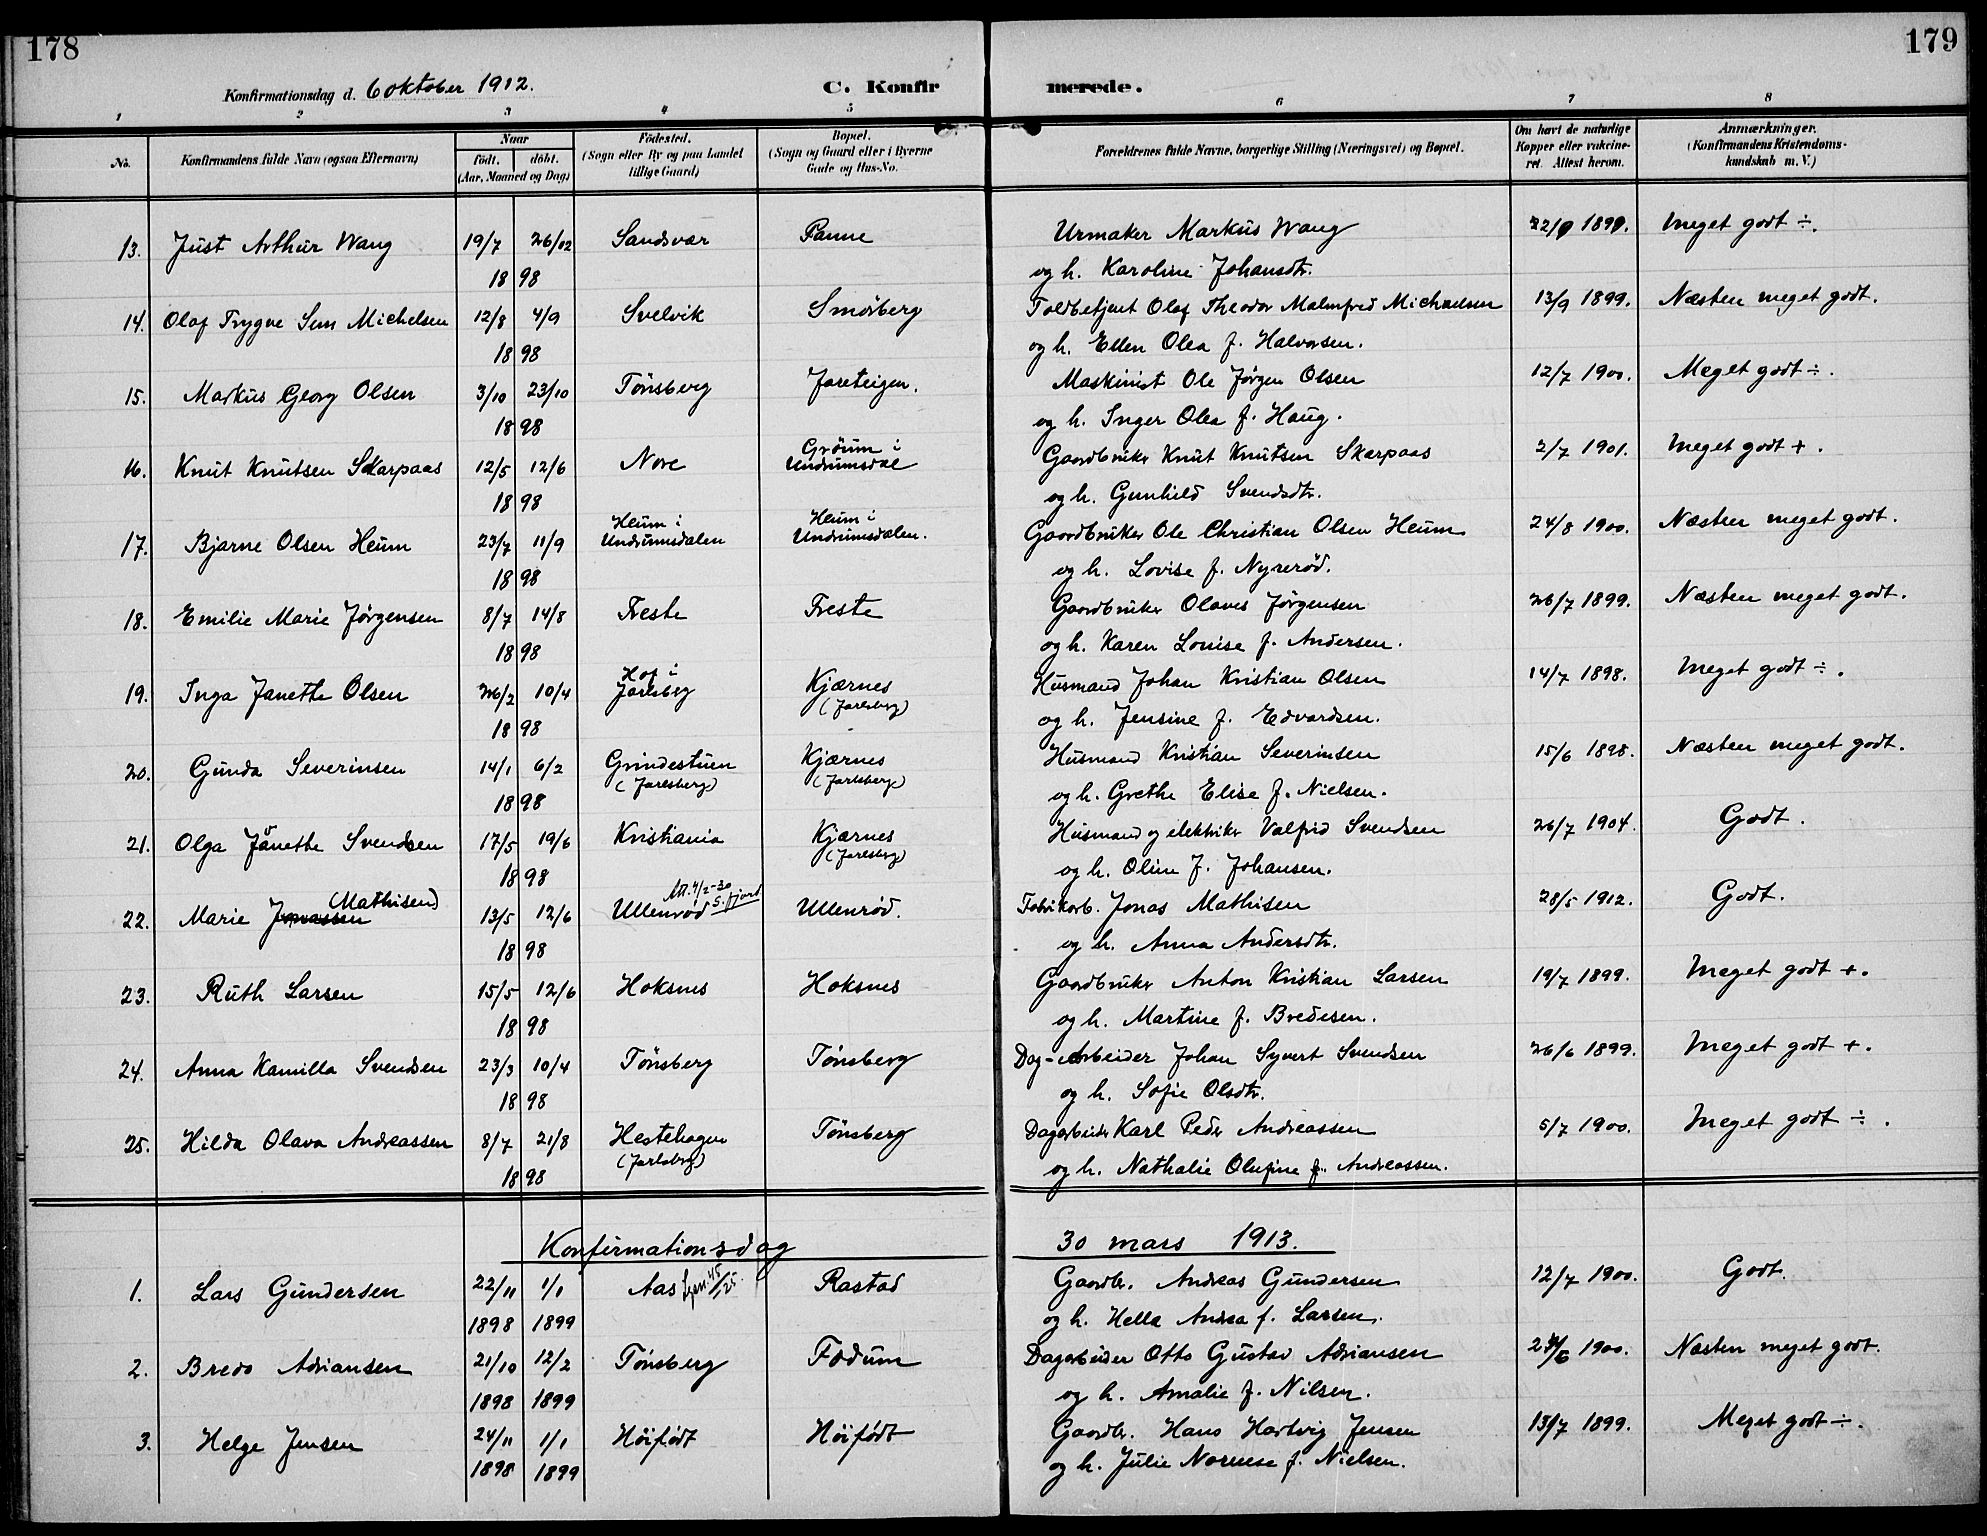 178
179
Konfirmationsdag d. 6 oktober 1912.
C. Konfirmerede.
1 2 3 4 5 6 7 8
No.
Konfirmandens fulde Navn (ogsaa Efternavn)
Naar
født. døbt.
(Aar, Maaned og Dag)
Födested.
(Sogn eller By og paa Landet
tillige Gaard)
Bopæl.
(Sogn og Gaard eller i Byerne
Gade og Hus-No.
Forældrenes fulde Navne, borgerlige Stilling (Næringsvei) og Bopæl.
Om havt de naturlige
Kopper eller vakcine-
ret. Attest herom.
Anmærkninger.
(Konfirmandens Kristendoms-
kundskab m. V.)
13. Just Arthur Wang 19/7 26/02 Sandsvær Ramne Urmaker Markus Wang 22/9 1899. Meget godt ÷.
1898 og h. Karoline Johansdtr.
14. Olaf Trygve Sem Michelsen 12/8 4/9 Svelvik Smörberg Toldbetjent Olaf Theodor Malmfred Michaelsen 13/9 1899. Næsten meget godt.
1898 og h. Ellen Olea f. Halvorsen.
15. Markus Georg Olsen 3/10 23/10 Tönsberg Jareteigen. Maskinist Ole Jörgen Olsen 12/7 1900. Meget godt ÷.
1898 og h. Inger Olea f. Haug.
16. Knut Knutsen Skarpaas 12/5 12/6 Nore Gröum i Undrumsdal Gaardbruker Knut Knutsen Skarpaas 2/7 1901. Meget godt +.
1898 og h. Gunhild Svendsdtr.
17. Bjarne Olsen Heum 23/7 11/9 Heum i Undrumsdalen Heum i Undrumsdalen. Gaardbruker Ole Christian Olsen Heum 24/8 1900. Næsten meget godt.
1898 og h. Lovise f. Nyrerød.
18. Emilie Marie Jörgensen 8/7 14/8 Freste Freste Gaardbruker Olaves Jörgensen 26/7 1899. Næsten meget godt.
1898 og h. Karen Louise f. Andersen.
19. Inga Janette Olsen 26/2 10/4 Hof i Jarlsberg Kjærnes (Jarlsberg) Husmand Johan Kristian Olsen 14/7 1898. Meget godt ÷.
1898 og h. Jensine f. Edvardsen.
20. Gunda Severinsen 14/1 6/2 Grindestuen (Jarlsberg) Kjærnes (Jarlsberg) Husmand Kristian Severinsen 15/6 1898. Næsten meget godt.
1898 og h. Grethe Elise f. Nielsen.
21. Olga Janette Svendsen 17/5 19/6 Kristiania Kjærnes (Jarlsberg) Husmand og elektriker Valfrid Svendsen 26/7 1904. Godt.
1898 og h. Oline f. Johansen.
22. Marie Jonassen (Mathisen) 13/5 12/6 Ullenrød Att. 4/2-30 S.fjord Ullenrød. Fabrikarb. Jonas Mathisen 28/5 1912. Godt.
1898 og h. Anna Andersdtr.
23. Ruth Larsen 15/5 12/6 Hoksnes Hoksnes Gaardbruker Anton Kristian Larsen 19/7 1899. Meget godt +.
1898 og h. Martine f. Bredesen.
24. Anna Kamilla Svendsen 23/3 10/4 Tönsberg Tönsberg Dag-arbeider Johan Syvert Svendsen 26/6 1899. Meget godt +.
1898 og h. Sofie Olsdtr.
25. Hilda Olava Andreassen 8/7 21/8 Hestehagen (Jarlsberg) Tönsberg Dagarbeider Karl Peder Andreassen 5/7 1900. Meget godt ÷.
1898 og h. Nathalie Olufine f. Andreassen.
Konfirmationsdag 30 mars 1913.
1. Lars Gundersen 22/11 1/1 Aas Rastad Gaardbr. Andreas Gundersen 12/7 1900. Godt.
1898 1899 og h. Hella Andrea f. Larsen.
2. Bredo Adriansen 21/10 12/2 Tönsberg Fodum Dagarbeider Otto Gustav Adriansen 24/6 1900. Næsten meget godt.
1898 1899 og h. Amalie f. Nilsen.
3. Helge Jensen 24/11 1/1 Höifödt Höifödt Gaardbr. Hans Hartvig Jensen 13/7 1899. Meget godt ÷.
1898 1899 og h. Julie Nornese f. Nielsen.